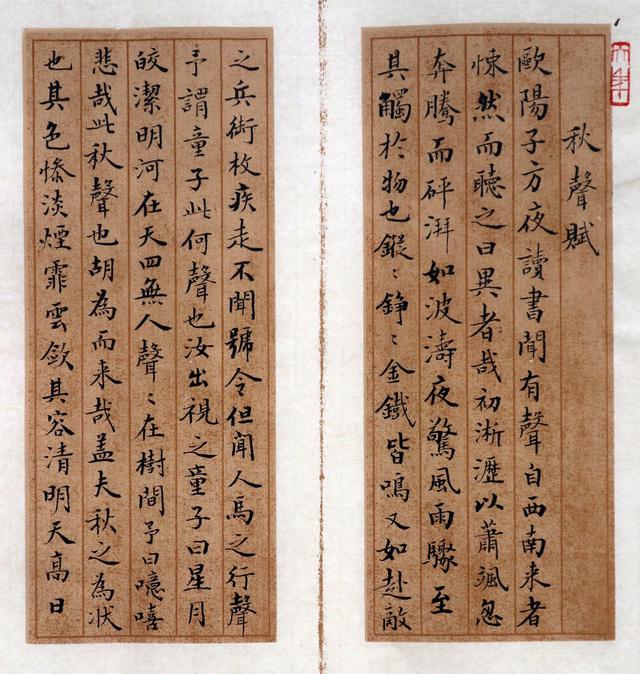 秋聲賦
歐陽子方夜讀書聞有聲自西南来者
悚然而聽之曰異者哉初淅瀝以蕭颯忽
奔騰而砰湃如波濤夜驚風雨驟至
其觸於物也鏦〻錚〻金鐵皆鳴又如赴敵
之兵銜枚疾走不聞號令但聞人馬之行聲
予謂童子此何聲也汝出視之童子曰星月
皎潔明河在天四無人聲〻在樹間予曰噫嘻
悲哉此秋聲也胡為而来哉盖夫秋之為状
也其色慘淡煙霏雲歛其容清明天高日